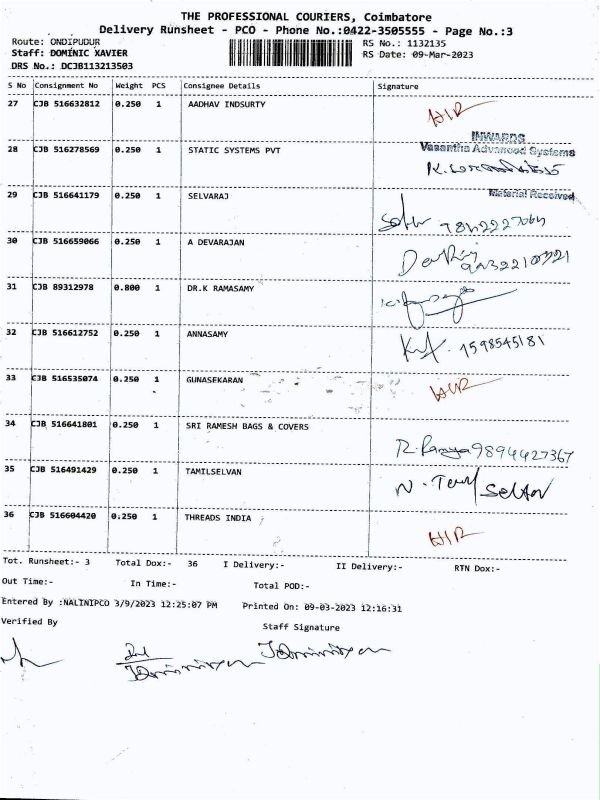 THE PROFESSIONAL COURIERS, Coimbatore
Delivery Runsheet - PCO - Phone No.:0422-3505555 - Page No.:3
Route: ONDIPUDUR
RS No.: 1132135
Staff: DOMINIC XAVIER
RS Date: 09-Mar-2023
DRS No.: DCJB113213503
S No Consignment No Weight PCS Consignee Details Signature
27 CJB 516632812 0.250 1 AADHAV INDSURTY
28 CJB 516278569 0.250 1 STATIC SYSTEMS PVT
INWARDS
Vasantha Advanced Systems
Material Received
29 CJB 516641179 0.250 1 SELVARAJ
30 CJB 516659066 0.250 1 A DEVARAJAN
31 CJB 89312978 0.800 1 DR.K RAMASAMY
32 CJB 516612752 0.250 1 ANNASAMY
1598545181
33 CJB 516535074 0.250 1 GUNASEKARAN
34 CJB 516641801 0.250 1 SRI RAMESH BAGS & COVERS
9894427367
35 CJB 516491429 0.250 1 TAMILSELVAN
36 CJB 516604420 0.250 1 THREADS INDIA
Tot. Runsheet:- 3 Total Dox:- 36 I Delivery:- II Delivery:- RTN Dox:-
Out Time:- In Time:- Total POD:-
Entered By :NALINIPCO 3/9/2023 12:25:07 PM Printed On: 09-03-2023 12:16:31
Verified By Staff Signature